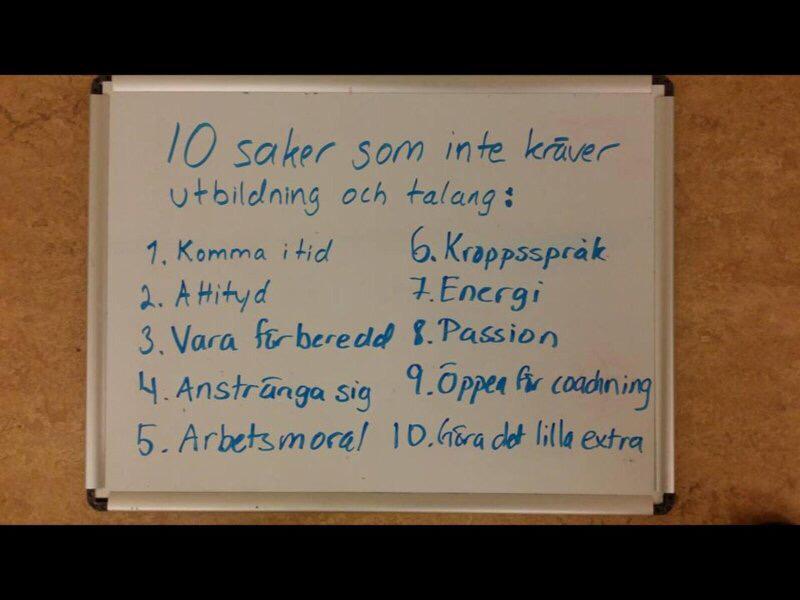 10 saker som inte kräver
utbildning och talang:
1. Komma i tid
2. Attityd
3. Vara förberedd
4. Anstränga sig
5. Arbetsmoral
6. Kroppsspråk
7. Energi
8. Passion
9. Öppen för coachning
10. Göra det lilla extra